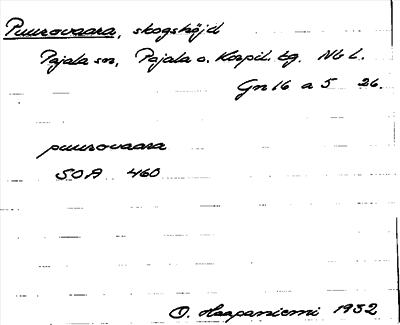 Puurovaara, skogshöjd
Pajala sn, Pajala o. Korpil. tg. Nb l.
Gn 16 a 5 26.
puurovaara
SOA 460
O. Haapaniemi 1932